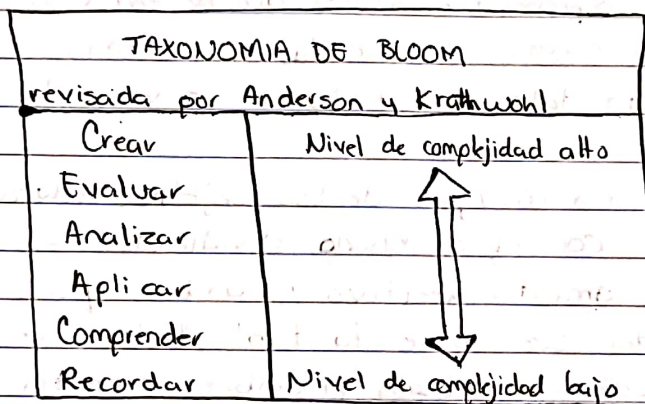 TAXONOMIA DE BLOOM
revisada por Anderson y Krathwohl
Crear Nivel de complejidad alto
Evaluar
Analizar
Aplicar
Comprender
Recordar Nivel de complejidad bajo